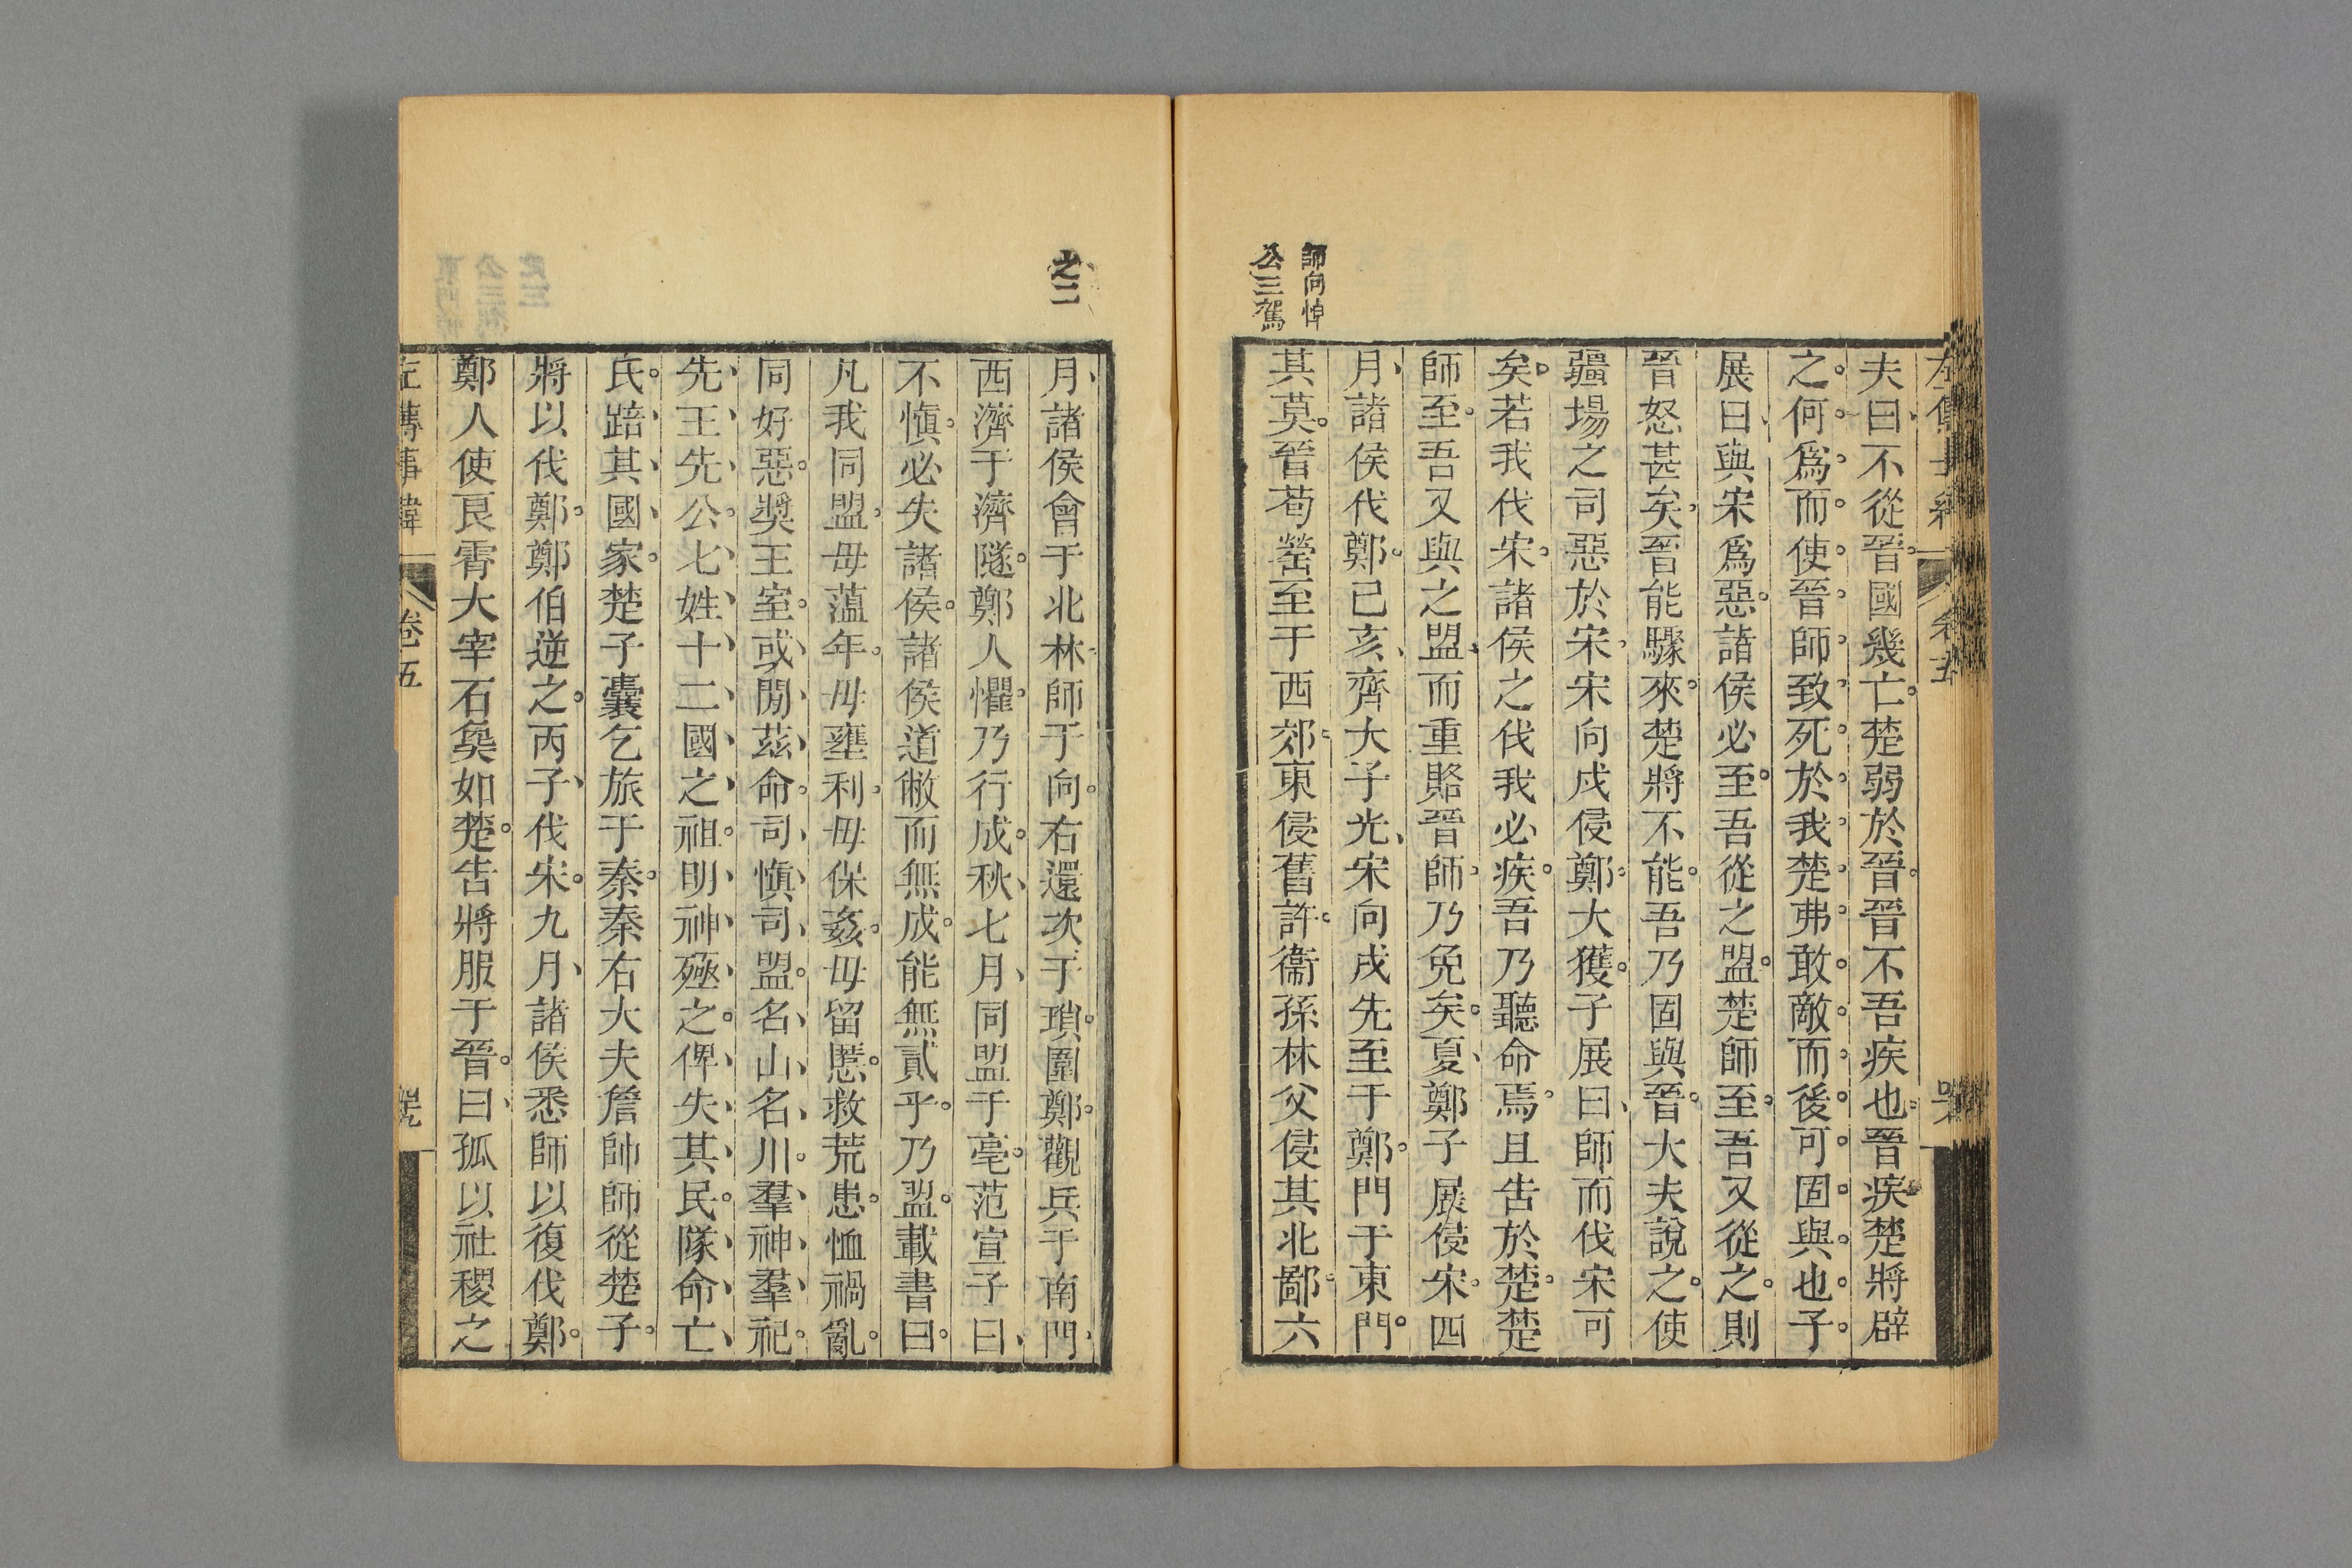 夫曰不從晉國幾亡楚弱於晉晉不吾疾也晉疾楚將辟
之何爲而使晉師致死於我楚弗敢敵而後可固與也子
展曰與宋爲惡諸侯必至吾從之盟楚師至吾又從之則
晉怒甚矣晉能驟來楚將不能吾乃固與晉大夫說之使
疆場之司惡於宋宋向戌侵鄭大獲子展曰師而伐宋可
矣若我伐宋諸侯之伐我必疾吾乃聽命焉且告於楚楚
師至吾又與之盟而重賂晉師乃免矣夏鄭子展侵宋四
月諸侯伐鄭己亥齊大子光宋向戌先至于鄭門于東門
其莫晉荀罃至于西郊東侵舊許衞孫林父侵其北鄙六
師向悼
公三駕
之二
月諸侯會于北林師于向右還次于瑣圍鄭觀兵于南門
西濟于濟隧鄭人懼乃行成秋七月同盟于亳范宣子曰
不愼必失諸侯諸侯道敝而無成能無貳乎乃盟載書曰
凡我同盟毋薀年毋壅利毋保姦毋留慝救荒患恤禍亂
同好惡奬王室或閒茲命司愼司盟名山名川羣神羣祀
先王先公七姓十二國之祖明神殛之俾失其民隊命亡
氏踣其國家楚子囊乞旅于秦秦右大夫詹帥師從楚子
將以伐鄭鄭伯逆之丙子伐宋九月諸侯悉師以復伐鄭
鄭人使良霄大宰石㚟如楚告將服于晉曰孤以社稷之
左傳事緯
卷五